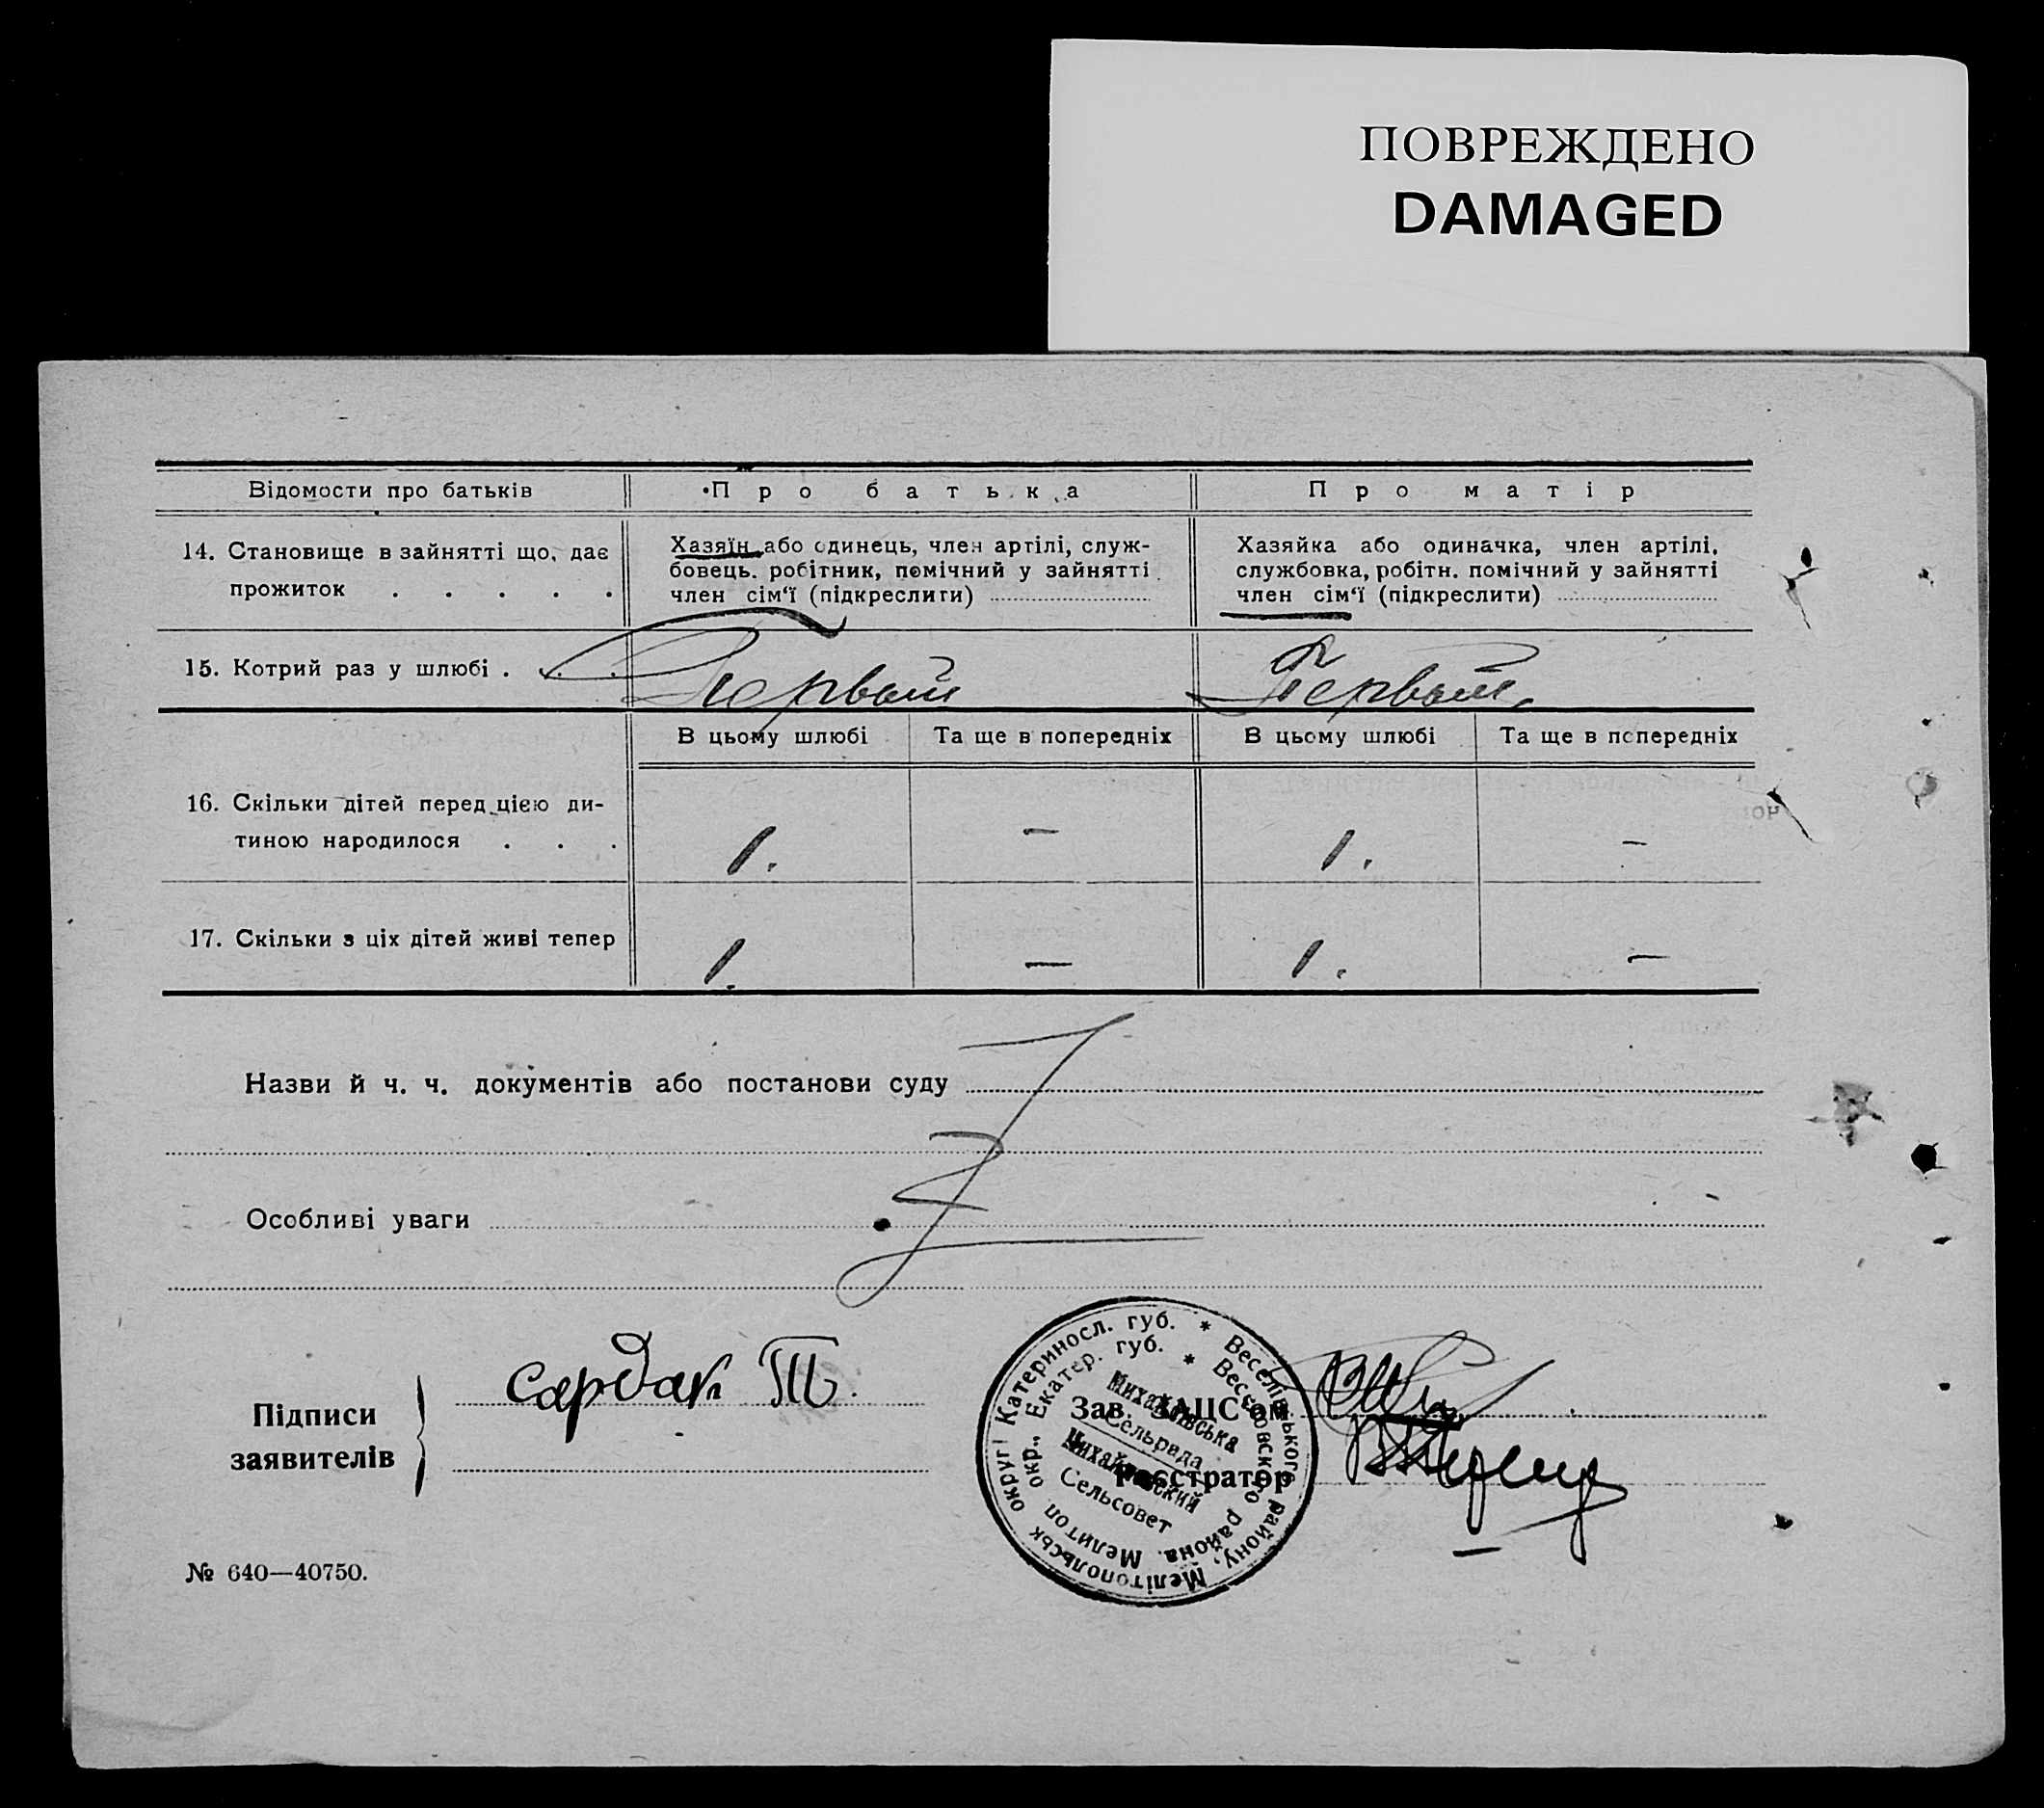 ПОВРЕЖДЕНО
DAMAGED
Відомости про батьків
Про батька
Про матір
14. Становище в зайнятті що, дає
прожиток . . . . .
Хазяїн або одинець, член артілі, служ-
бовець. робітник, помічний у зайнятті
член сім‘ї (підкреслити)
Хазяйка або одиначка, член артілі,
службовка, робітн. помічний у зайнятті
член сім‘ї (підкреслити)
15. Котрий раз у шлюбі . . .
Первый
Первый
В цьому шлюбі
Та ще в попередніх
В цьому шлюбі
Та ще в попередніх
16. Скільки дітей перед цією ди-
тиною народилося . . .
1.
—
1.
—
17. Скільки з ціх дітей живі тепер
1.
—
1.
—
Назви й ч. ч. документів або постанови суду
Особливі уваги
Підписи
заявителів
сардак Т.
Зав. ЗАЦС‘ом
Реєстратор
Веселівського району, Мелітопольськ округі Катериносл. губ. *
Веселовского района. Мелитоп окр., Екатер. губ. *
Михайлівська
Сельрада
Михайловский
Сельсовет
№ 640—40750.